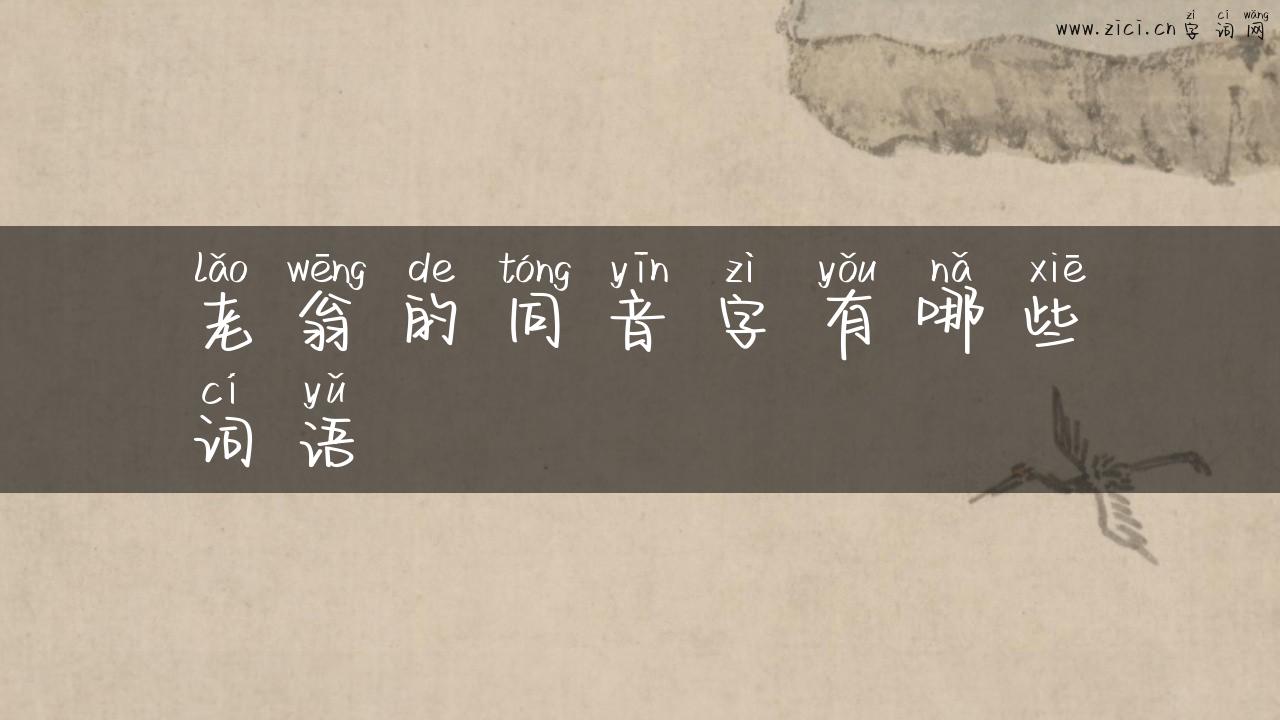 zì cí wǎng
www.zici.cn 字词网
lǎo wēng de tóng yīn zì yǒu nǎ xiē
老翁的同音字有哪些
cí yǔ
词语